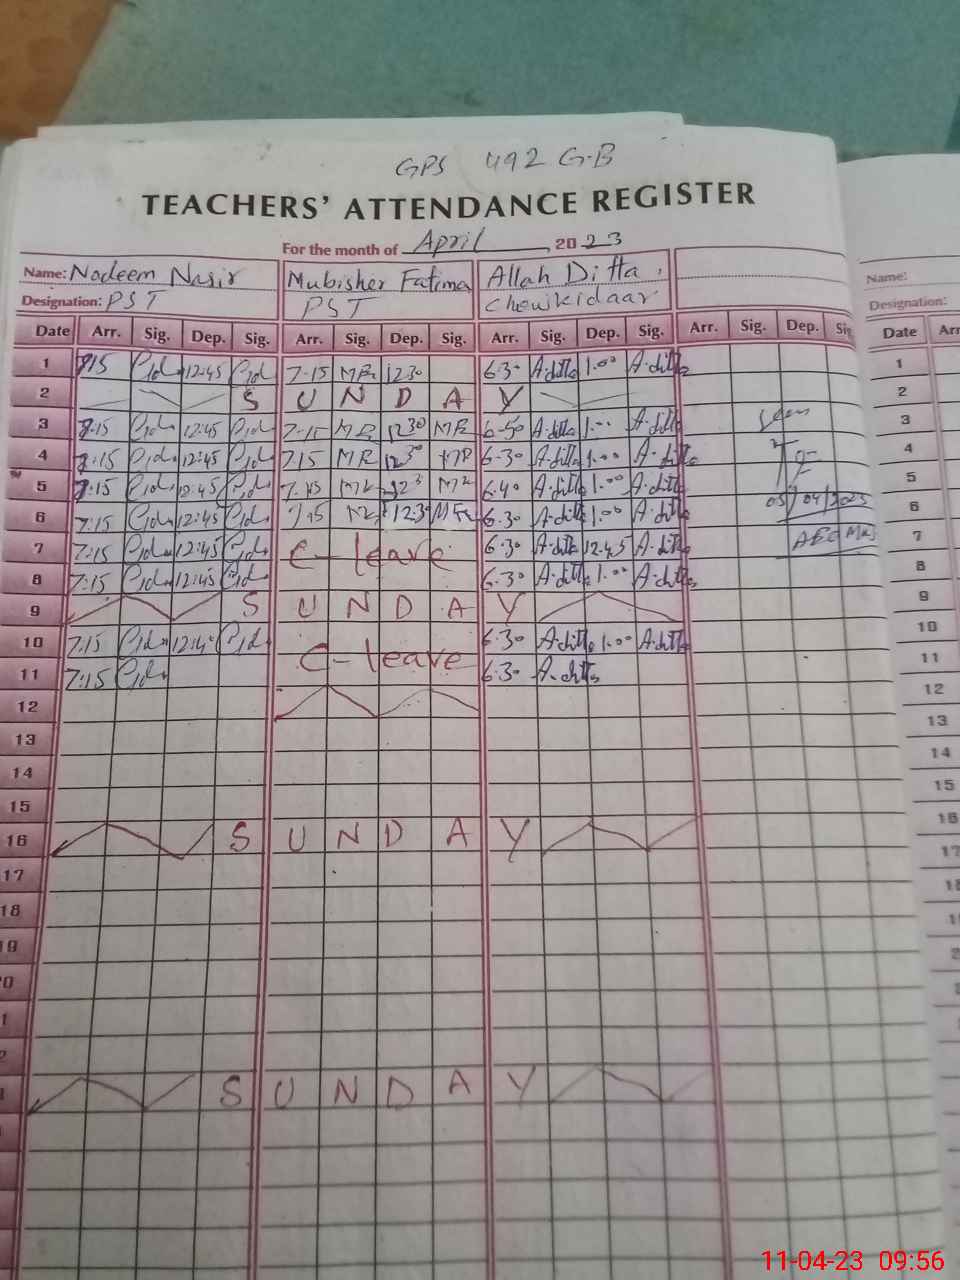 GPS 492 G.B
TEACHERS' ATTENDANCE REGISTER
For the month of April, 2023
Name: Nadeem Nasir Mubisher Fatima Allah Ditta Name:
Designation: PST PST Chowkidaar Designation:
Date Arr. Sig. Dep. Sig. Arr. Sig. Dep. Sig. Arr. Sig. Dep. Sig. Arr. Sig. Dep. Date
1 7:15 12:45 7-15 12 30 6-30 A.ditta 1.00 A.ditta 1
2 S U N D A Y 2
3 7:15 12:45 7-15 MR 12 30 MR 6-50 A.ditta 1.00 A.ditta Seen 3
4 7:15 12:45 7.15 MR 12 30 MR 6-30 A.ditta 1.00 A.ditta 4
5 7:15 12:45 6-40 A.ditta 1.00 A.ditta 5
6 7:15 12:45 7.15 12.30 6-30 A.ditta 1.00 A.ditta 05/04/2023 6
7 7:15 12:45 C-leave 6-30 A.ditta 12.45 A.ditta 7
8 7:15 12:45 6-30 A.ditta 1.00 A.ditta 8
9 S U N D A Y 9
10 7:15 6-30 A.ditta 1.00 A.ditta 10
11 7:15 C-leave 6-30 A.ditta 11
12 12
13 13
14 14
15 15
16 S U N D A Y 16
17 17
18
19
S U N D A Y
11-04-23 09:56